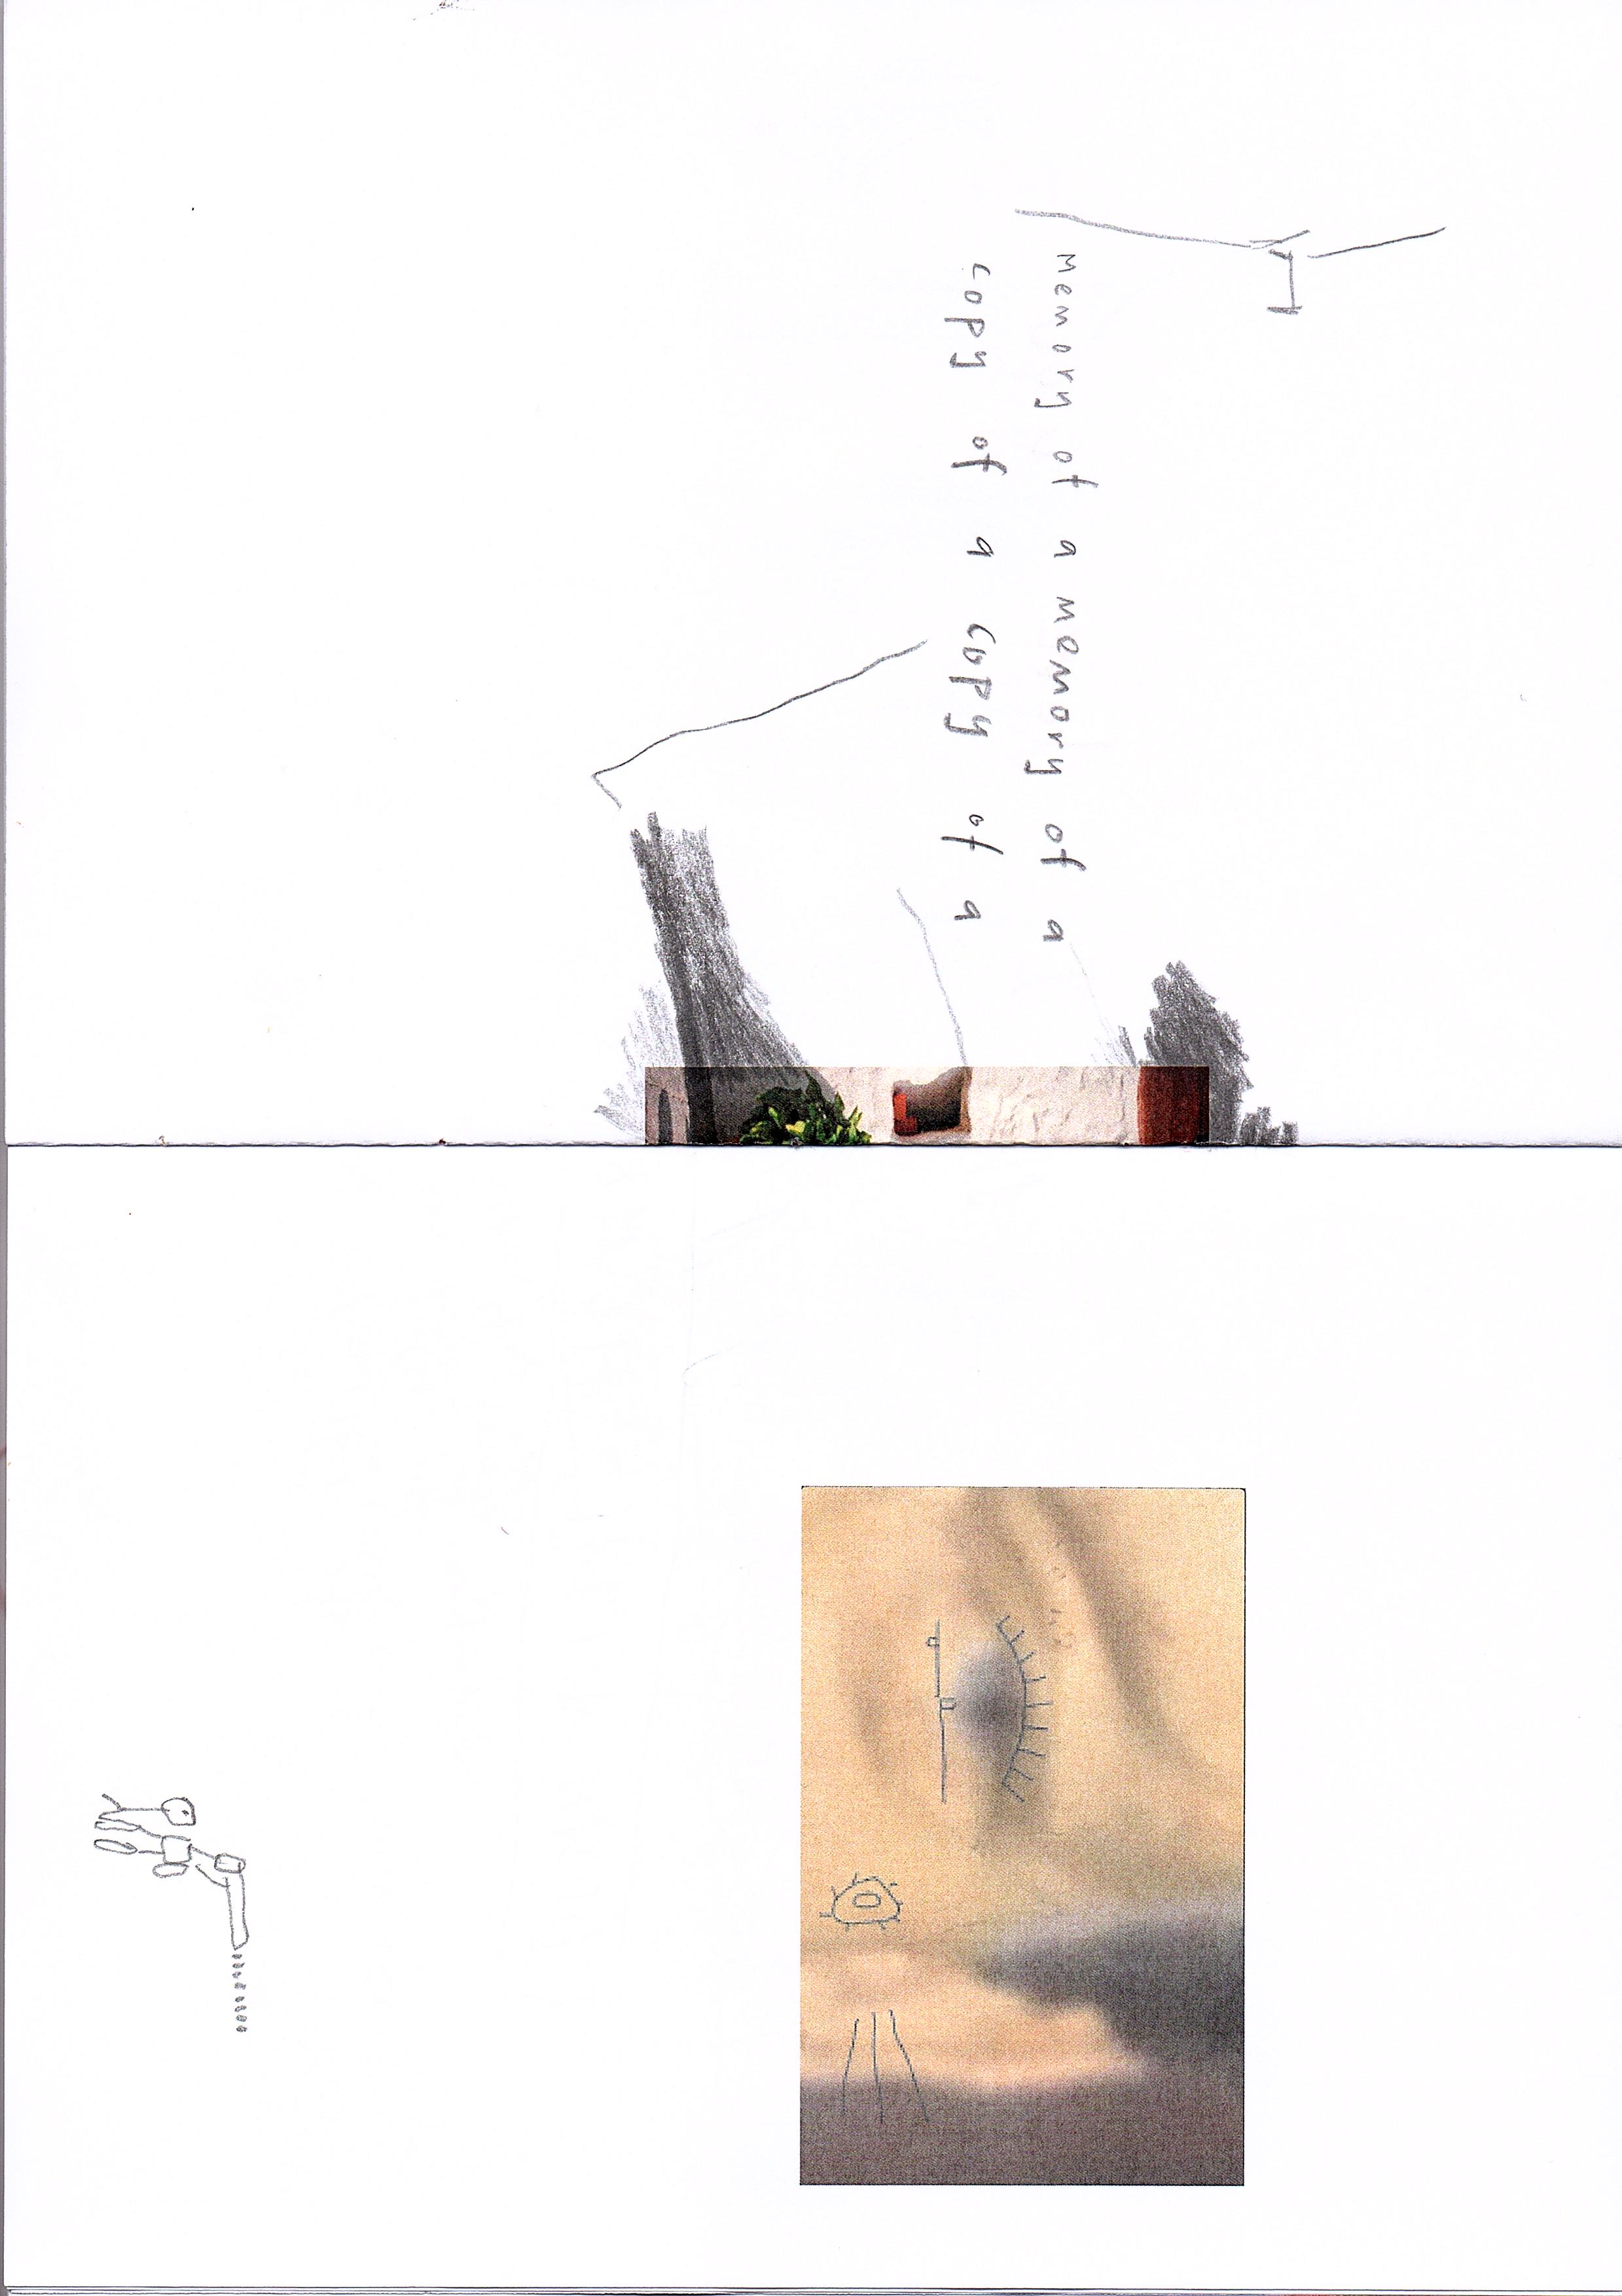 memory of a memory of a
copy of a copy of a